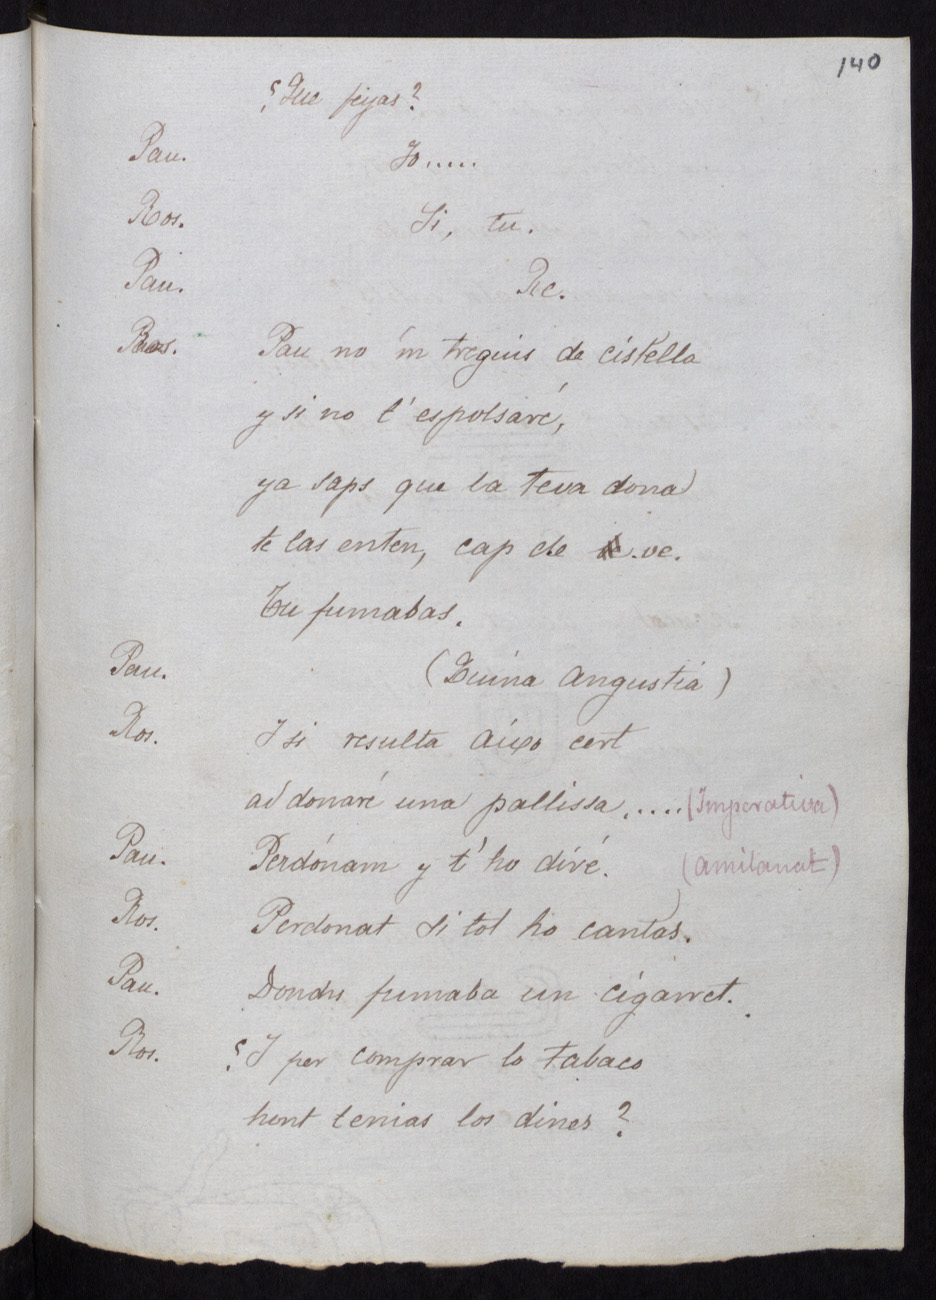 140
¿Que feyas?
Pau. Jo.....
Ros. Si, tu.
Pau. Re.
Ros. Pau no 'm treguis de cistella
y si no t' espolsaré,
ya saps que la teva dona
te las enten, cap de .ve.
Tu fumabas.
Pau. (Quina angustia)
Ros. Y si resulta aixo cert
ad donaré una pallissa ..... (Imperativa)
Pau. Perdónam y t' ho diré. (amilanat)
Ros. Perdonat si tot ho cantas.
Pau. Donchs fumaba un cigarret.
Ros. ¿Y per comprar lo tabaco
hont tenias los diners?